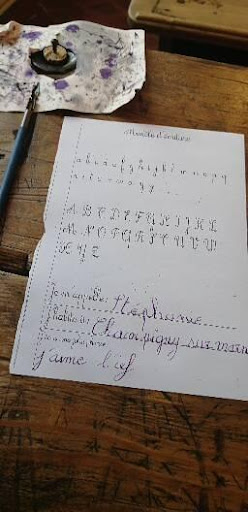 Modèle d'écriture
a b c d e f g h i j k l m n o p q
r s t u v w x y z
A B C D E F G H I J K L
M N O P Q R S T U V W
X Y Z
Je m'appelle: Stéphanie
J'habite à: Champigny sur marne
j'aime l'ief